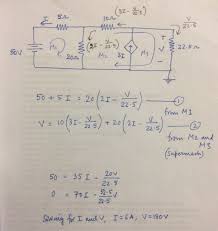 (3I - V/22.5)
I
5Ω
10Ω
V/22.5
50V
M1
20Ω
(3I - V/22.5)
M2
3I
M3
+
V
-
22.5Ω
50 + 5I = 20(2I - V/22.5) — ①
from M1
V = 10(3I - V/22.5) + 20(2I - V/22.5) — ②
from M2 and
M3
(Supermesh)
50 = 35I - 20V/22.5
0 = 70I - 52.5/22.5 V
Solving for I and V, I = 6A, V = 180V